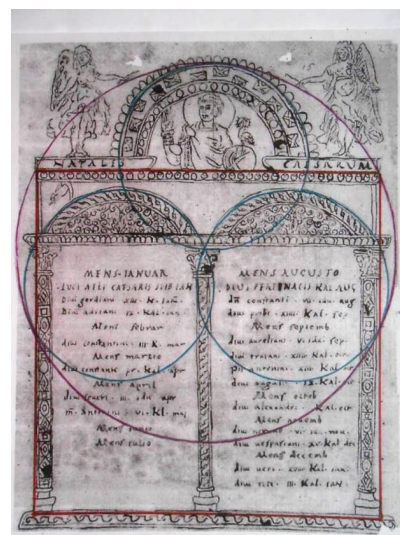 NATALES CAESARUM
MENS·IANUAR
LUCI AELI CAESARIS IAN
Diui gordiani xiii·K·
Diui adriani ix·Kal·
Mens februar
diui constantini·iii·K·mar
Mens martio
diui constanti pr·Kal·apr
Mens april
diui seueri·iii·idu apr
m·antonini·vi·Kl·mai
Mens iunio
Mens iulio
MENS AUGUSTO
DIUI PERTINACIS KAL AUG
constanti·vii·idu·aug
diui probi·xiiii·Kal·sep
Mens septemb
diui aureliani·v·idu·sep
diui traiani·xiiii Kal·oct
pii antonini·xiii Kal·oct
diui augusti·ix·Kal·oct
Mens octob
diui alexandri·Kal·oct
Mens nouemb
diui neruae·vi·idu·nou
diui uespasiani·xv·Kal dec
Mens decemb
diui ueri·xviii Kal·ian
diui titi·iii·Kal·ian